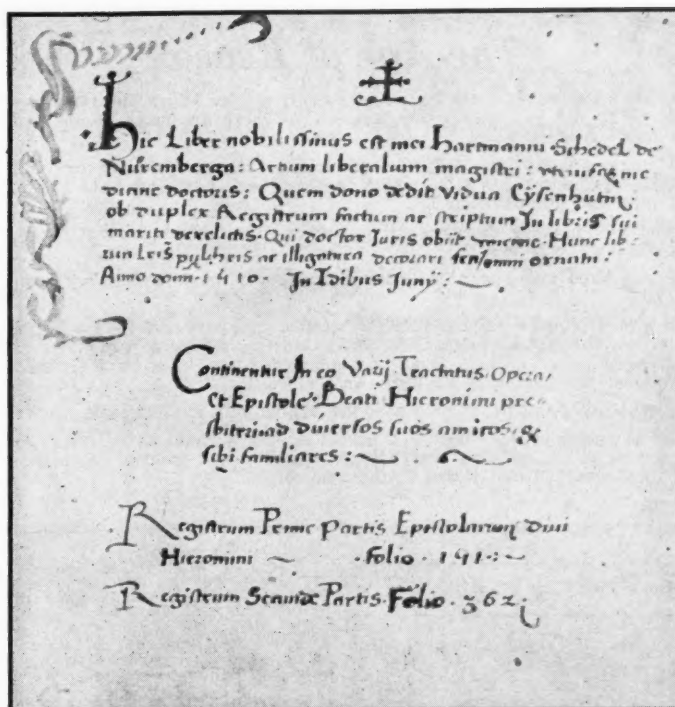 Hic Liber nobilissimus est mei Hartmanni Schedel de
Nuremberga: Artium liberalium magistri: utriusque me
dicine doctoris: Quem dono dedit Vidua Cÿsenhutin
ob duplex Registrum factum ac scriptum In libris sui
mariti derelictis. Qui doctor Juris obijt Hunc lib-
rum pulchris ac illigatura decorari ornari:
Anno domi. 1410. In Idibus Junij:
Continentur In eo Varij Tractatus. Opera,
et Epistole. Beati Hieronimi pre
sbiteri ad diuersos suos amicos &
sibi familiares:
Registrum Prime Partis Epistolarum diui
Hieronimi folio. 191:
Registrum Secunde Partis. Folio. 362.